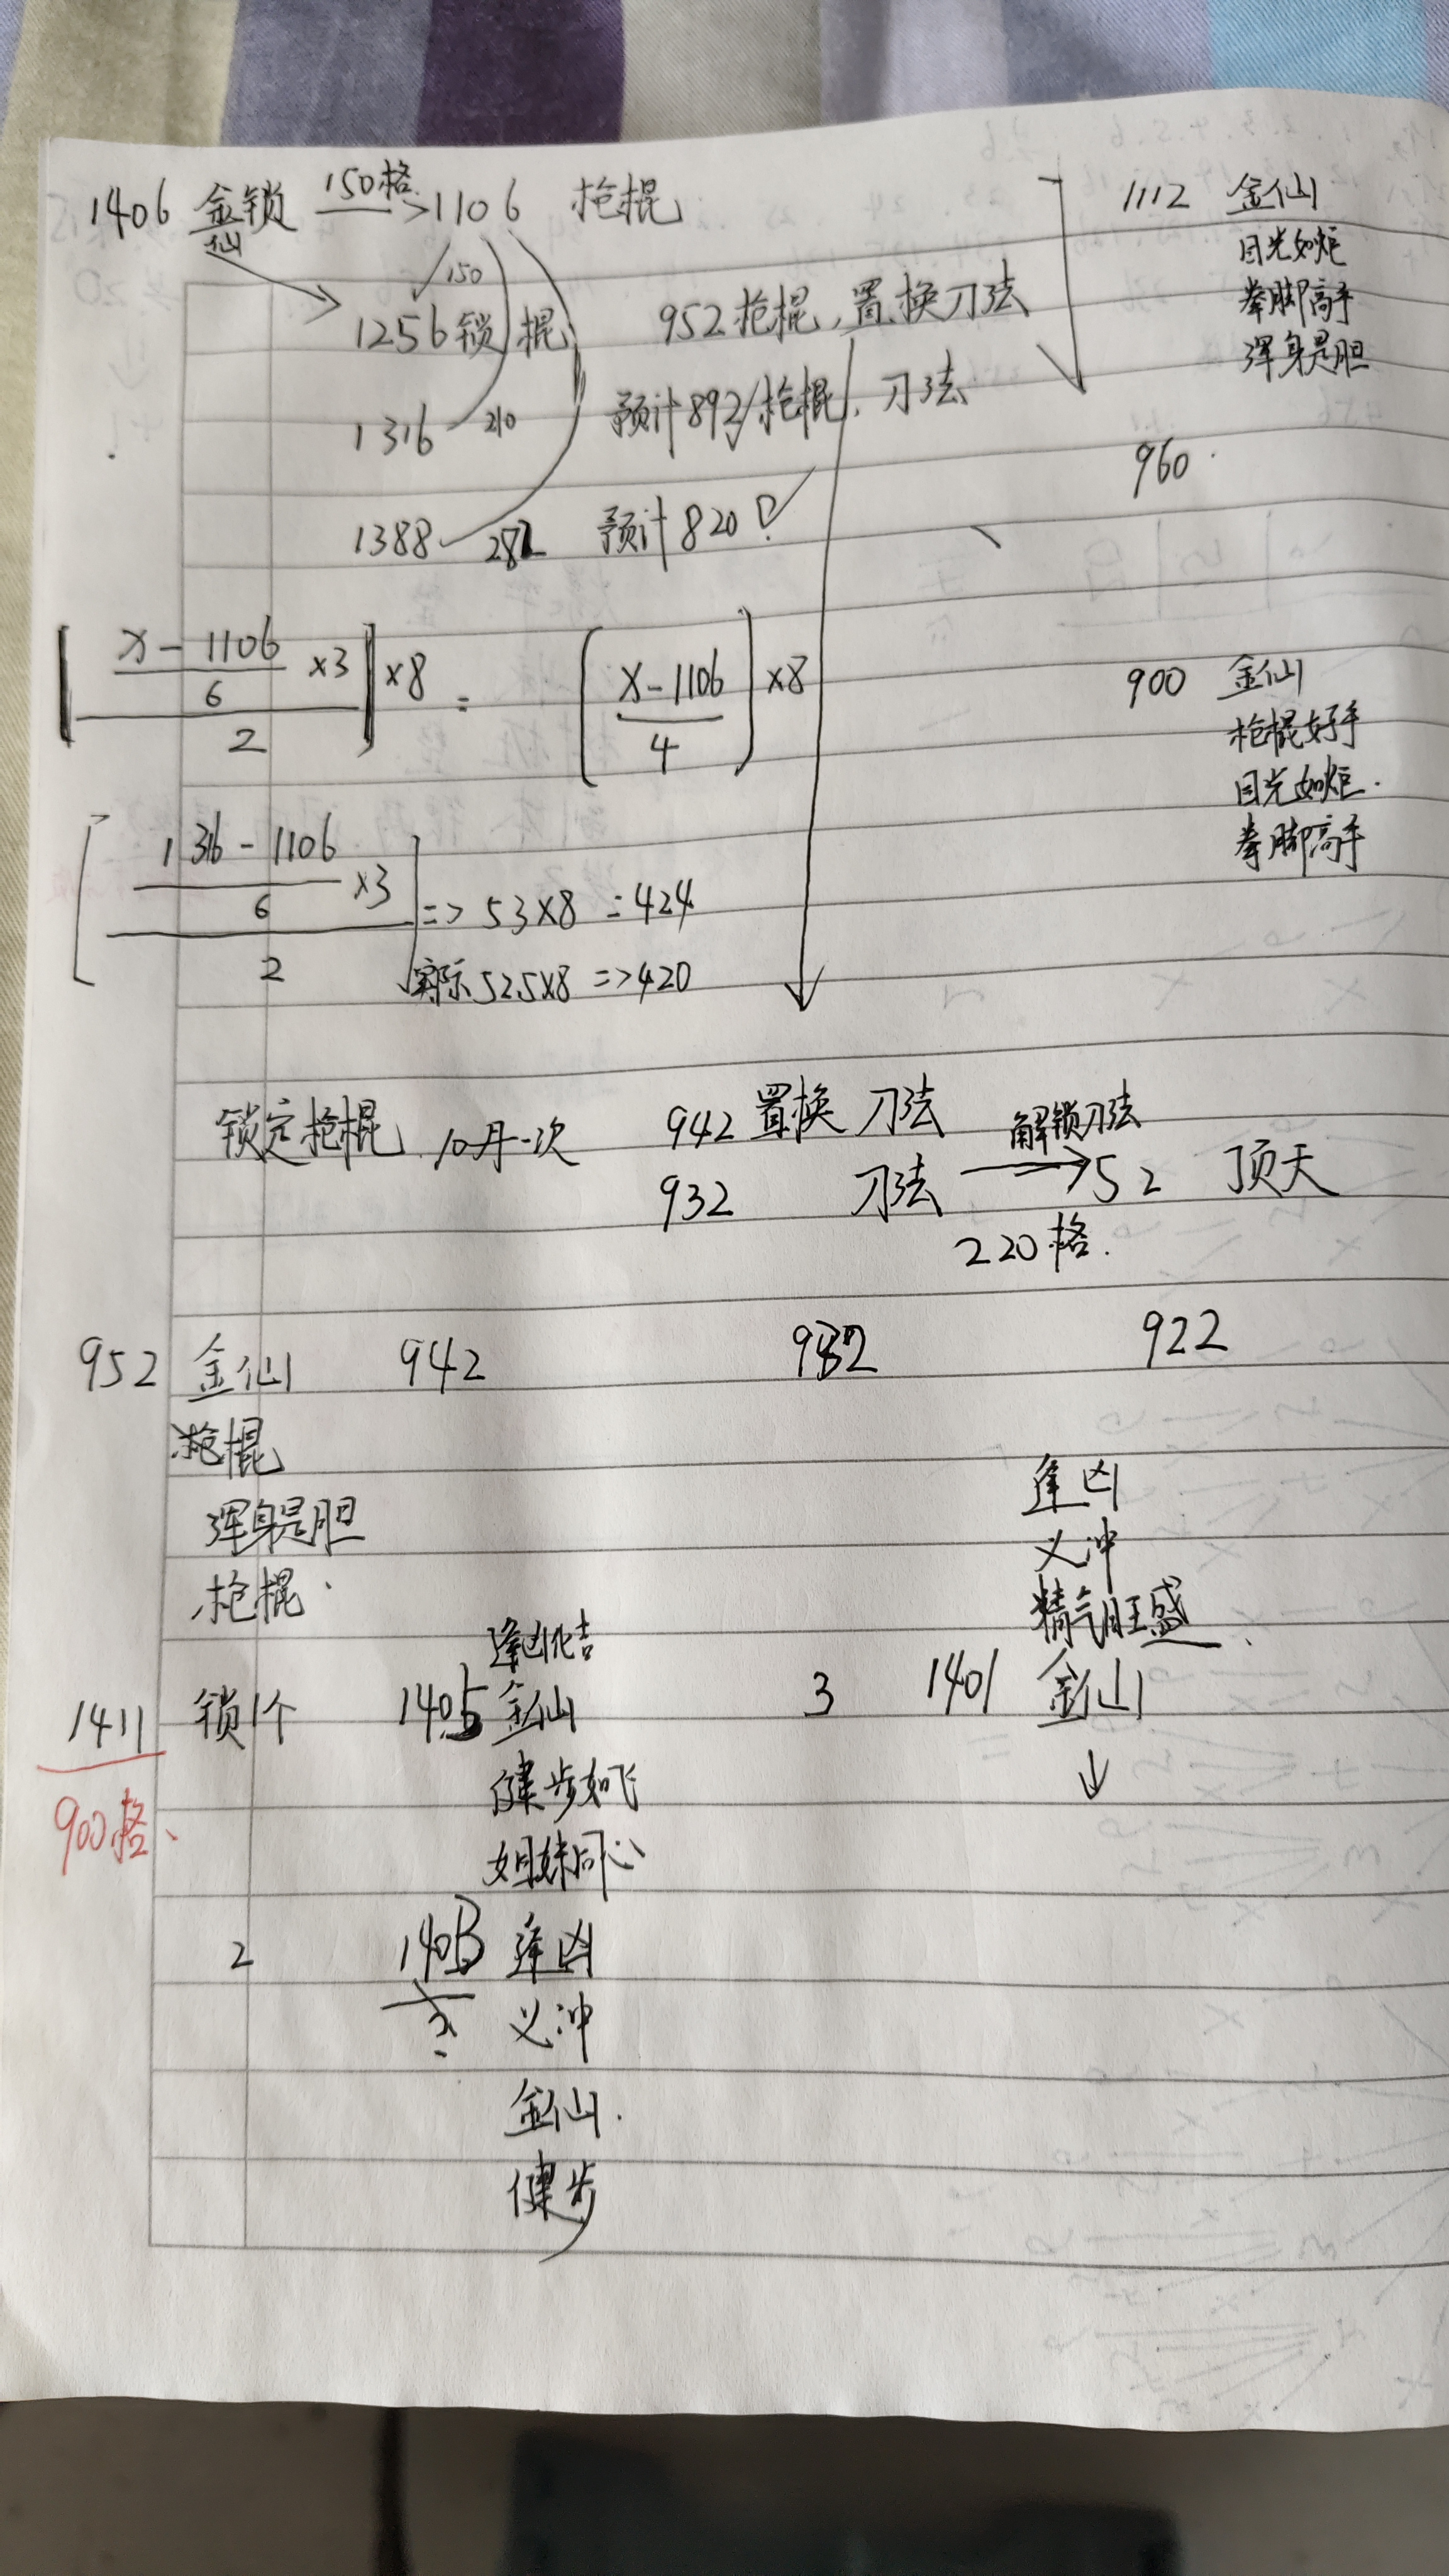 1406 金锁 150格 → 1106 枪棍
仙
150
1256 锁棍
952 枪棍, 置换刀法
1316 210 预计892 枪棍, 刀法
1388 282 预计820
1112 金仙
目光如炬
拳脚高手
浑身是胆
960
[x-1106/6 ×3 / 2] ×8 = [x-1106/4] ×8
900 金仙
枪棍好手
目光如炬.
拳脚高手
[1316-1106/6 ×3 / 2] => 53×8 = 424
实际 52.5×8 => 420
锁定枪棍 10月一次 942 置换 刀法
932 刀法 解锁刀法 → 52 顶天
220格.
952 金仙 942 932 922
枪棍
浑身是胆
枪棍
1411 锁1个
900格
逢凶化吉
1405 金仙
健步如飞
姐妹同心
2 1403 逢凶
义冲
金仙.
健步
逢凶
义冲
精气旺盛
3 1401 金仙
↓